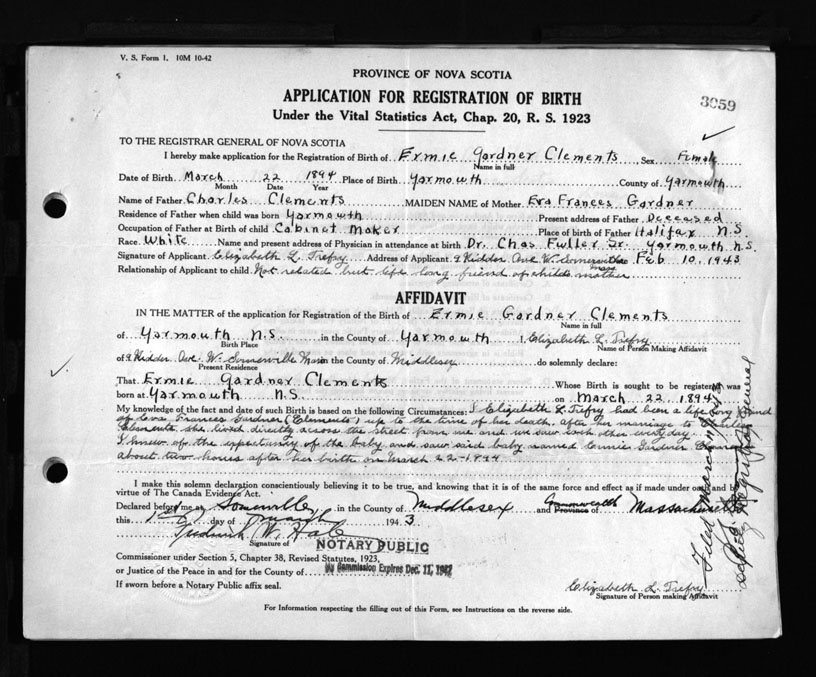 V. S. Form 1. 10M 10-42
PROVINCE OF NOVA SCOTIA
3059
APPLICATION FOR REGISTRATION OF BIRTH
Under the Vital Statistics Act, Chap. 20, R. S. 1923
TO THE REGISTRAR GENERAL OF NOVA SCOTIA
I hereby make application for the Registration of Birth of Ermie Gardner Clements Sex Female
Name in full
Date of Birth March 22 1894 Place of Birth Yarmouth County of Yarmouth
Month Date Year
Name of Father Charles Clements MAIDEN NAME of Mother Eva Frances Gardner
Residence of Father when child was born Yarmouth Present address of Father Deceased
Occupation of Father at Birth of child Cabinet Maker Place of birth of Father Halifax N.S.
Race White Name and present address of Physician in attendance at birth Dr. Chas Fuller Sr. Yarmouth N.S.
Signature of Applicant Elizabeth L. Trefry Address of Applicant 9 Kidder Ave W. Somerville Feb 10, 1943
Mass
Relationship of Applicant to child Not related but life long friend of childs mother
AFFIDAVIT
IN THE MATTER of the application for Registration of the Birth of Ermie Gardner Clements
Name in full
of Yarmouth N.S. in the County of Yarmouth I, Elizabeth L. Trefry
Birth Place Name of Person Making Affidavit
of 9 Kidder Ave. W. Somerville Mass in the County of Middlesex do solemnly declare:
Present Residence
That Ermie Gardner Clements Whose Birth is sought to be registered was
born at Yarmouth N.S on March 22, 1894
My knowledge of the fact and date of such Birth is based on the following Circumstances: I Elizabeth L. Trefry had been a life long friend
of Eva Frances Gardner (Clements) up to the time of her death. After her marriage to Charles
Clements she lived directly across the street from me and we saw each other everyday.
I knew of the expectancy of the baby and saw said baby named Ermie Gardner Clements
about two hours after her birth on March 22-1894
I make this solemn declaration conscientiously believing it to be true, and knowing that it is of the same force and effect as if made under oath and by
virtue of The Canada Evidence Act.
Declared before me at Somerville in the County of Middlesex and Province of Commonwealth Massachusetts
this day of March 1943
Frederick W.
Signature of NOTARY PUBLIC
Commissioner under Section 5, Chapter 38, Revised Statutes, 1923,
or Justice of the Peace in and for the County of My Commission Expires Dec. 11, 1947
If sworn before a Notary Public affix seal.
Elizabeth L. Trefry
Signature of Person making Affidavit
For Information respecting the filling out of this Form, see Instructions on the reverse side.
Filed March
Deputy Registrar General